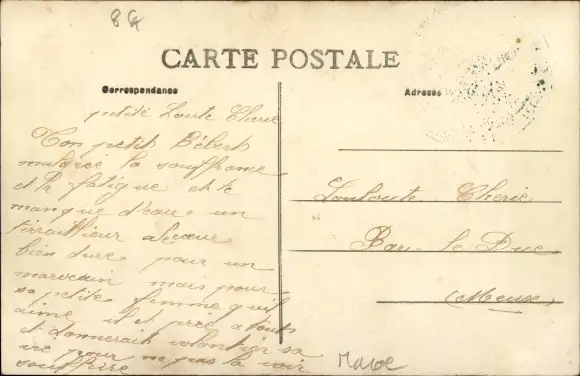 8
CARTE POSTALE
Correspondance
Adresse
petite Loute Cherie
Ton petit Bébert
malgré la souffrance
et la fatigue et le
manque d'eau un
tirrailleur a le cœur
bien dure pour un
marocain mais pour
sa petite femme qu'il
aime il et prêt a tout
et donnerait volontier sa
vie pour ne pas la voir
souffrire
Louloute Cherie
Bar-le Duc
(Meuse)
Maroc